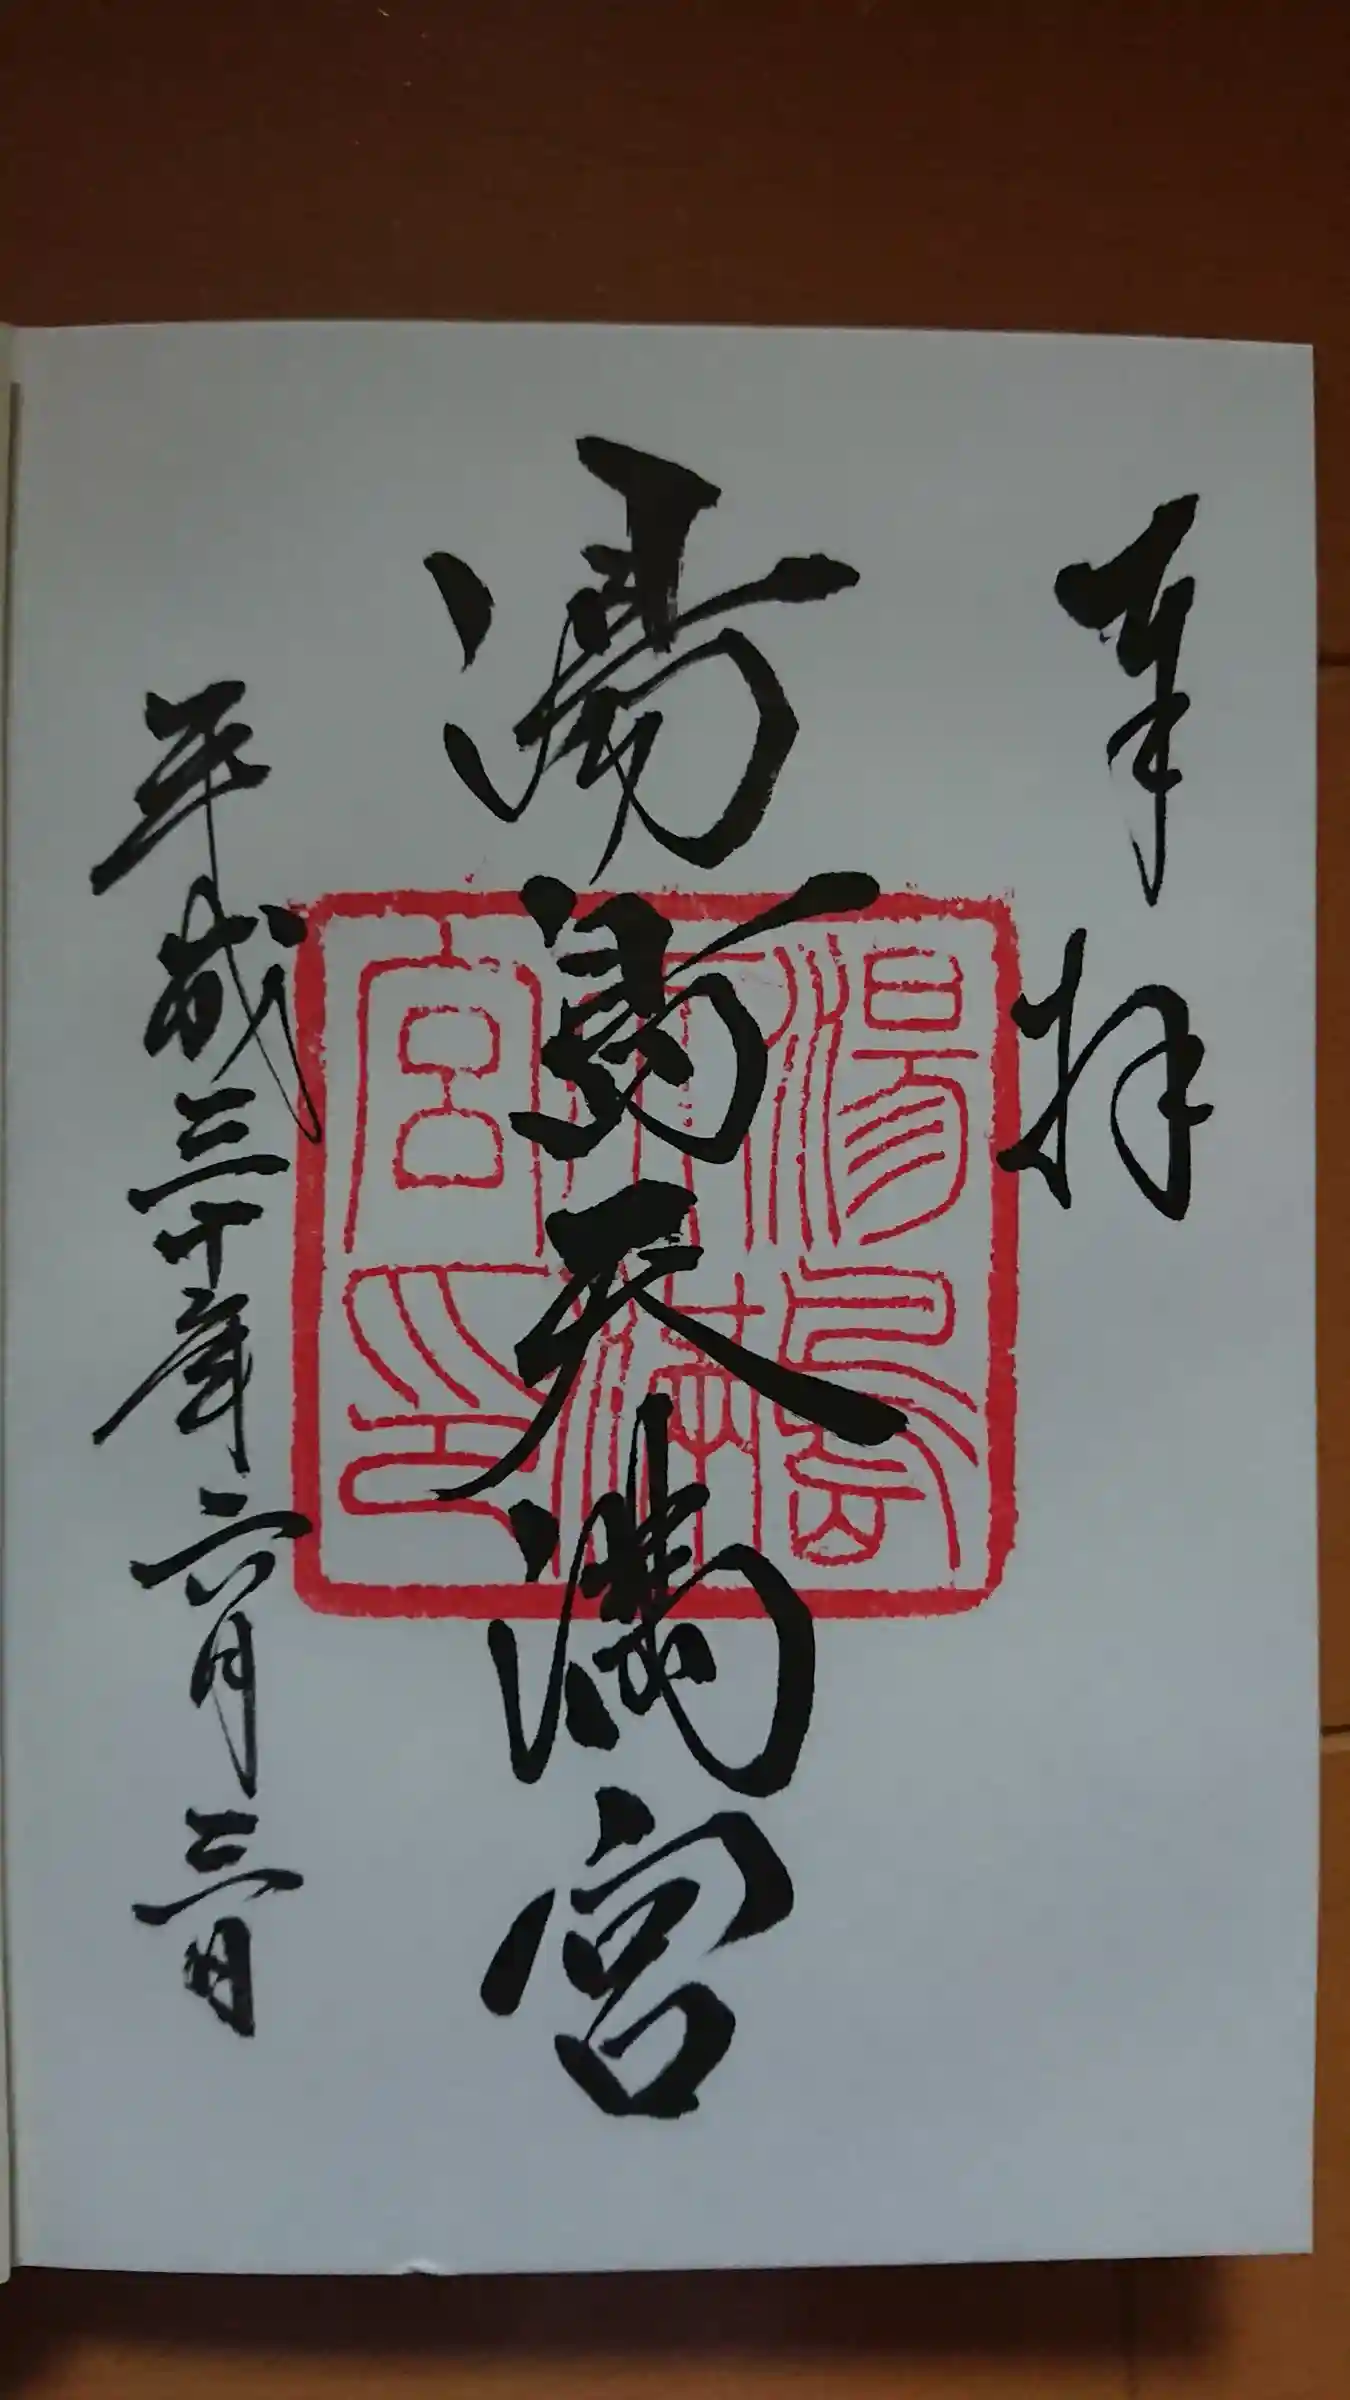 奉拝
湯島天満宮
平成三十年六月三日
湯島
天満
宮印